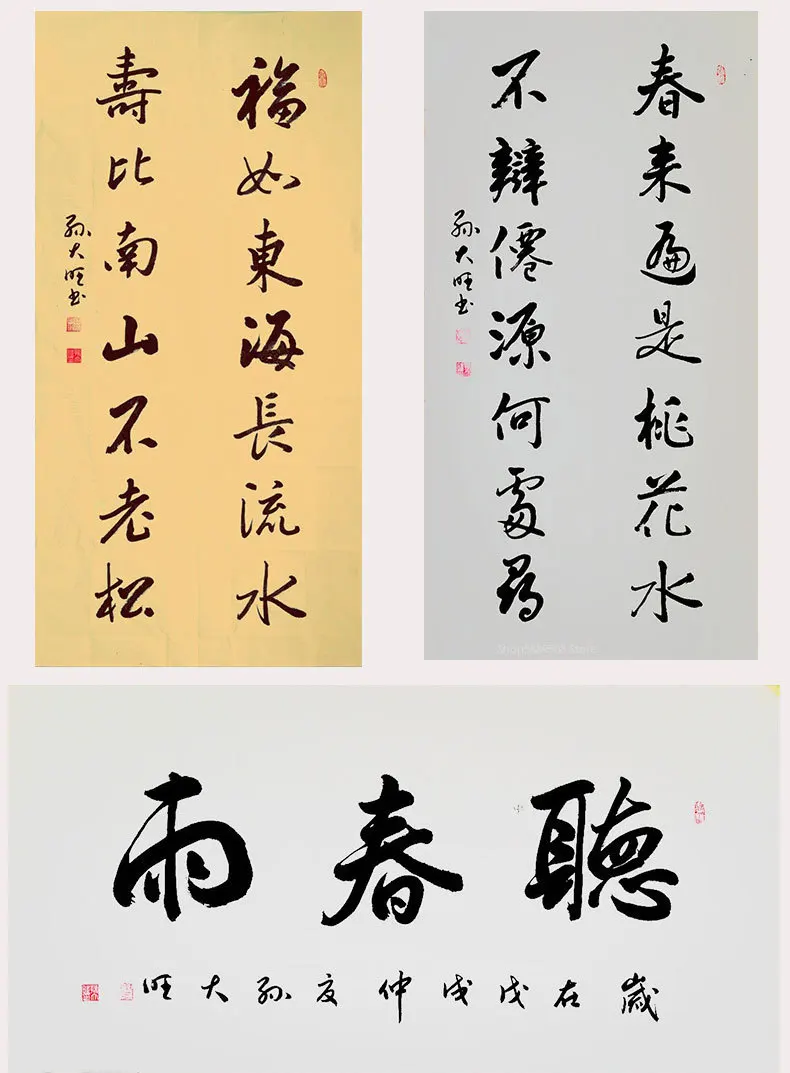 福如東海長流水
壽比南山不老松
孫大旺书
春来遍是桃花水
不辯僊源何處尋
孫大旺书
聽春雨
歲在戊戌仲夏孫大旺